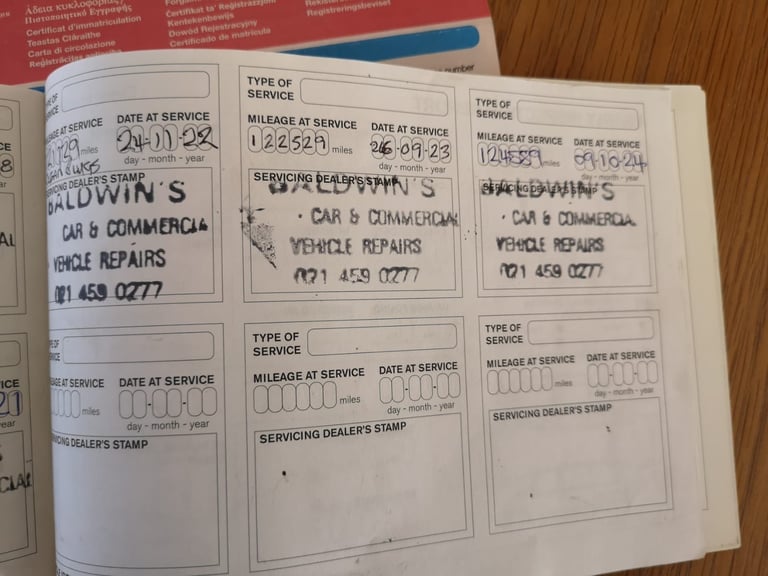 Άδεια κυκλοφορίας/
Πιστοποιητικό Εγγραφής
Certificat d'immatriculation
Teastas Cláraithe
Carta di circolazione
Certifikat ta' Reġistrazzjoni
Kentekenbewijs
Dowód Rejestracyjny
Certificado de matrícula
Registreringsbeviset
number
MILEAGE AT SERVICE
DATE AT SERVICE
24-11-22
miles
day - month - year
SERVICING DEALER'S STAMP
BALDWIN'S
CAR & COMMERCIAL
VEHICLE REPAIRS
021 459 0277
TYPE OF
SERVICE
MILEAGE AT SERVICE
DATE AT SERVICE
122529 miles
26-09-23
day - month - year
SERVICING DEALER'S STAMP
BALDWIN'S
CAR & COMMERCIAL
VEHICLE REPAIRS
021 459 0277
TYPE OF
SERVICE
MILEAGE AT SERVICE
DATE AT SERVICE
124889 miles
09-10-24
day - month - year
SERVICING DEALER'S STAMP
BALDWIN'S
CAR & COMMERCIAL
VEHICLE REPAIRS
021 459 0277
SERVICE
MILEAGE AT SERVICE
DATE AT SERVICE
miles
day - month - year
SERVICING DEALER'S STAMP
TYPE OF
SERVICE
MILEAGE AT SERVICE
DATE AT SERVICE
miles
day - month - year
SERVICING DEALER'S STAMP
TYPE OF
SERVICE
MILEAGE AT SERVICE
DATE AT SERVICE
miles
day - month - year
SERVICING DEALER'S STAMP